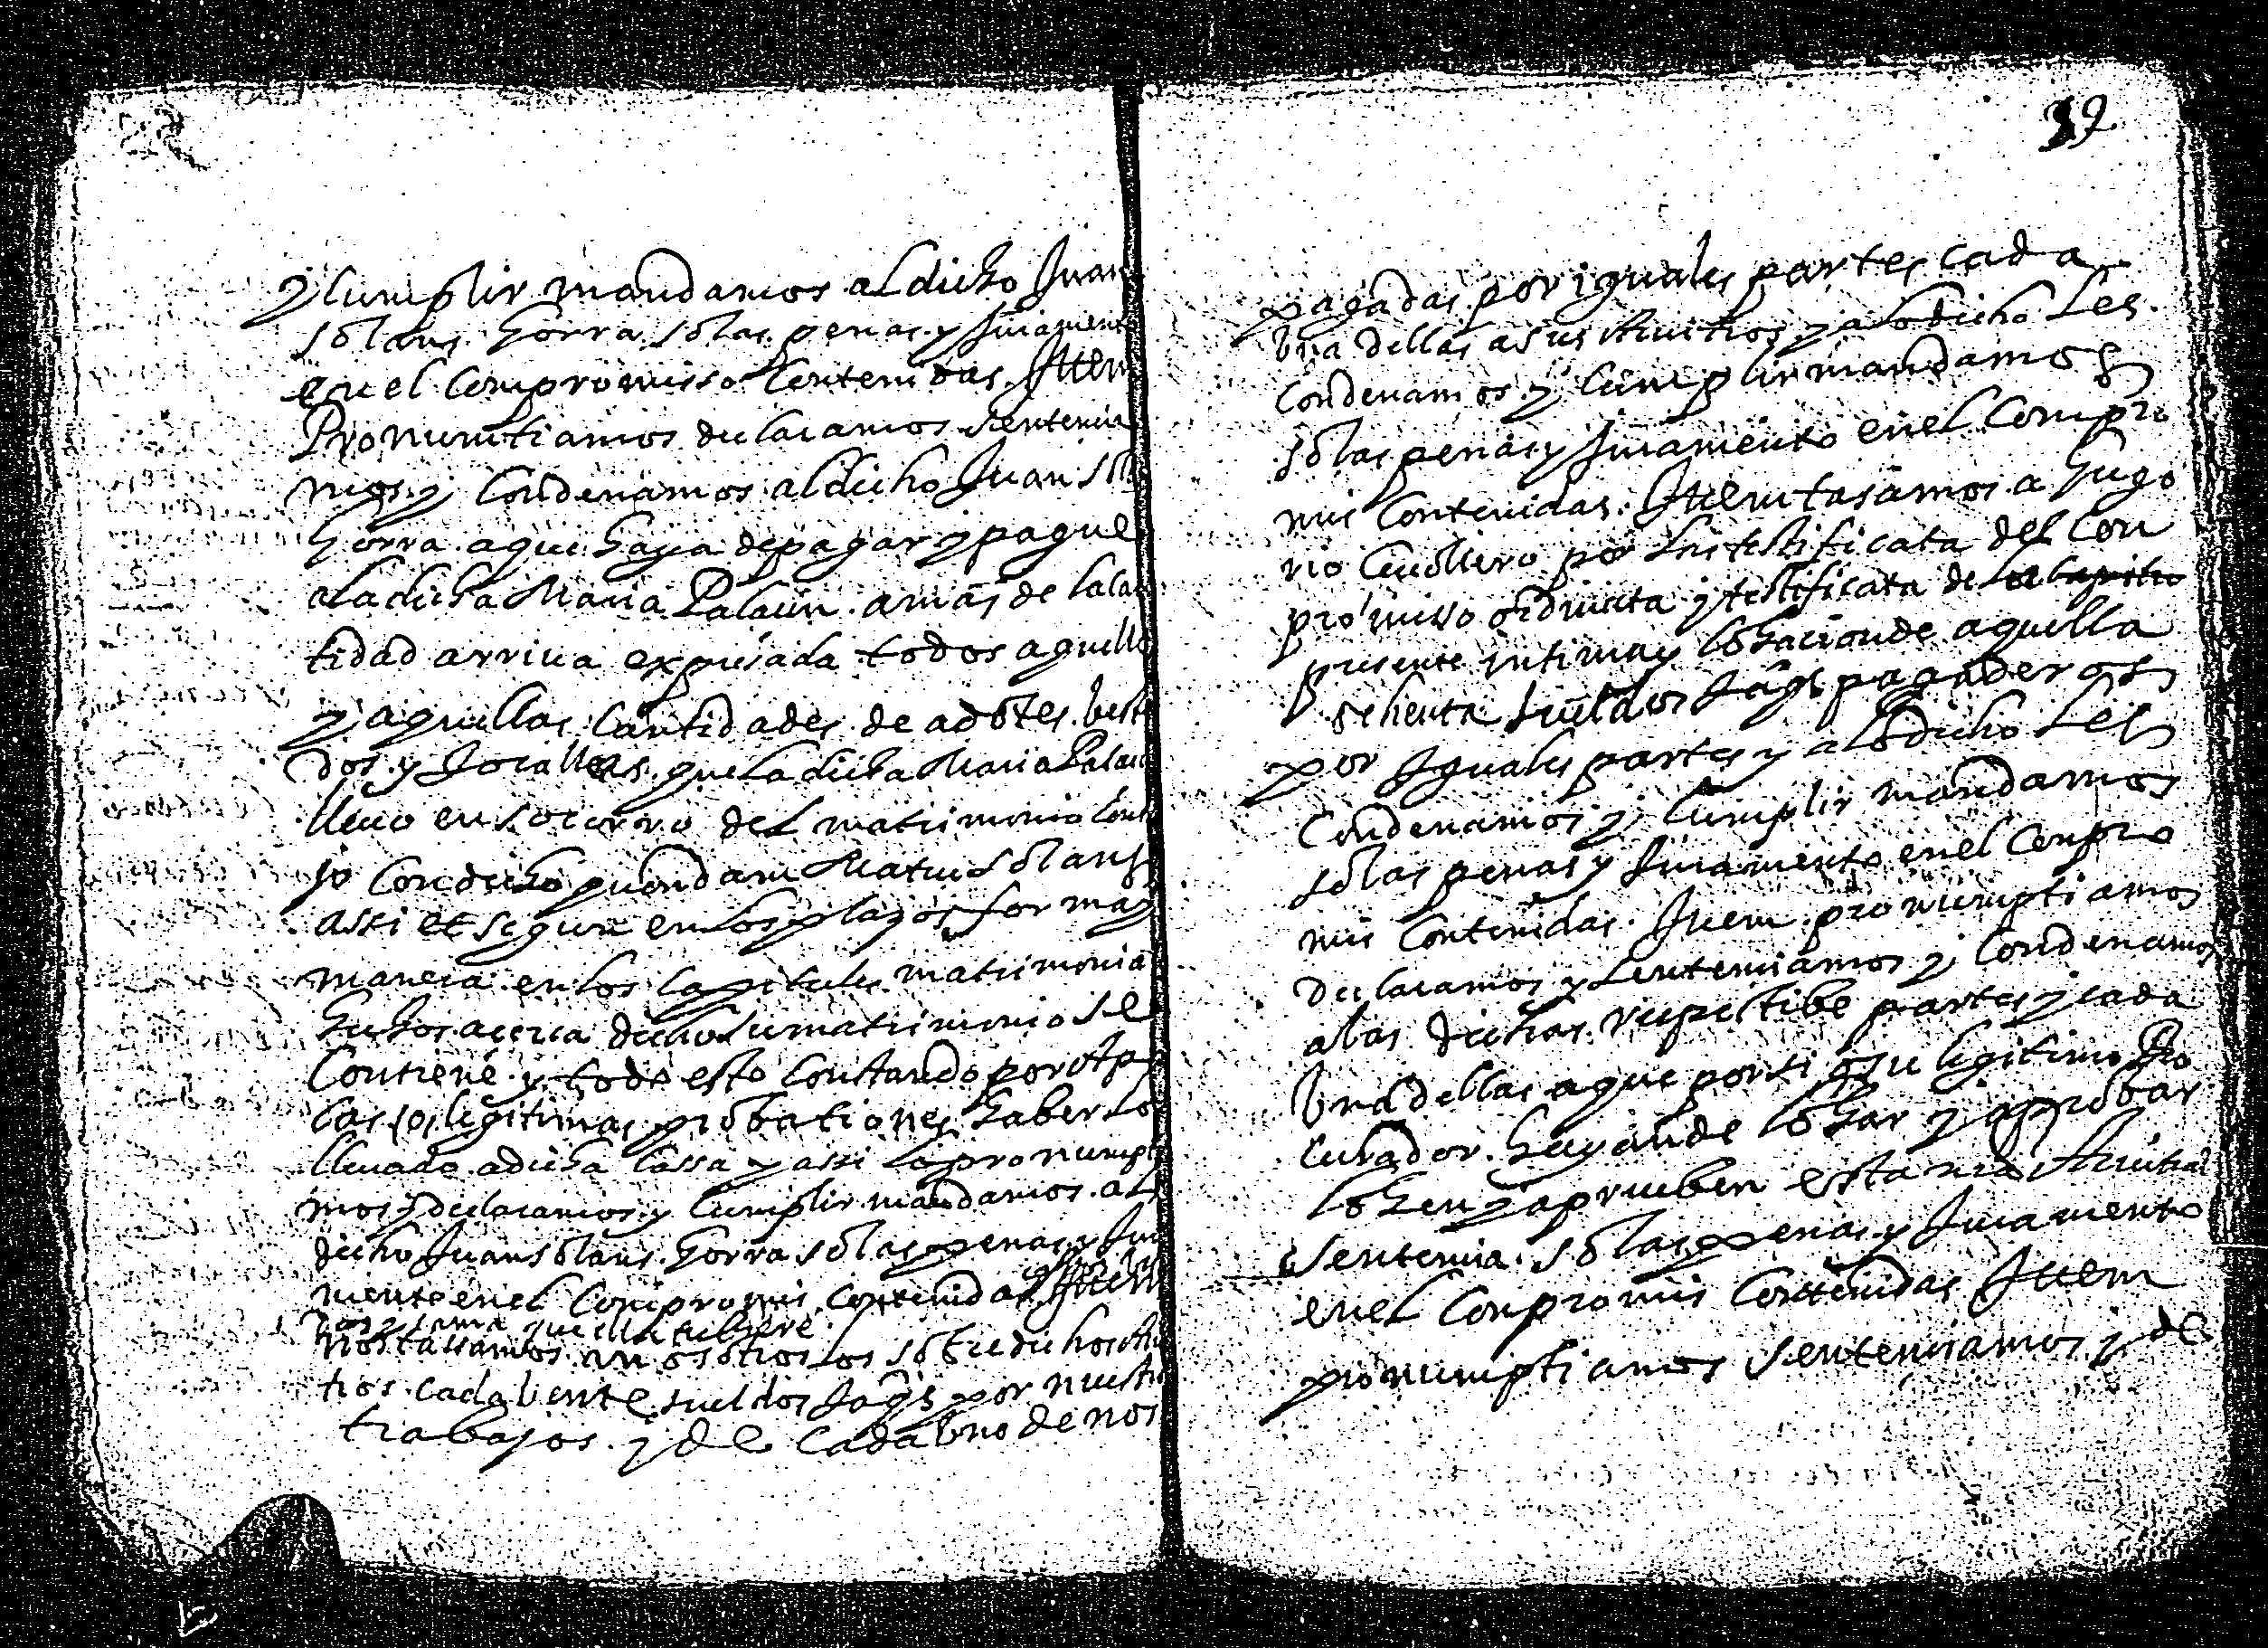 39
y cumplir mandamos al dicho Juan
Solans Gorra so las penas y Juramento
en el compromisso contenidas Item
Pronuntiamos declaramos sentencia
mos y condenamos al dicho Juan Sol
Gorra a que haya de pagar y pague
a la dicha Maria Palacin a mas de la can
tidad arriua expresada todos aquello
y aquellas cantidades de adotes besti
dos y Jocallers que la dicha Maria Palaci
lleuo en socorro del matrimonio
jo con dicho quondam Mateu Solans
assi et segun en los plazos forma y
manera en los capitules matrimonia
hechos acerca dicho su matrimonio se
contiene y todo esto constando por
las legitimas probationes haber lo
lleuado a dicha cassa y assi lo pronumptia
mos y declaramos y cumplir mandamos al
dicho Juan Solans Gorra so las penas y Jura
mento en el compromis contenidas Item
nos tassamos a nosotros los sobredichos
tros cada bente sueldos Jaqs por nuestros
trabajos y de cada bno de nos
pagadas por iguales partes cada
bna dellas a sus Arbitros y a lo dicho les
condenamos y cumplir mandamos
so las penas y Juramento en el compro
mis contenidas. Item tasamos a Hugo
rio por la testificata del con
promisso ordinata y testificata de la
presente intima y lohacion de aquella
sesenta sueldos Jaqs pagaderos
por Iguales partes y a lo dicho les
condenamos y cumplir mandamos
so las penas y Juramento en el conpro
mis contenidas. Item pronumptiamos
declaramos y sentenciamos y condenamos
a las dichas respectibe partes y cada
bna dellas a que por si o su legitimo Pro
curador hayan de lohar y aprobar
lohen y aprueben esta nra Arbitral
sentencia so las penas y Juramento
en el conpromis contenidas Item
pronumptiamos sentenciamos y de